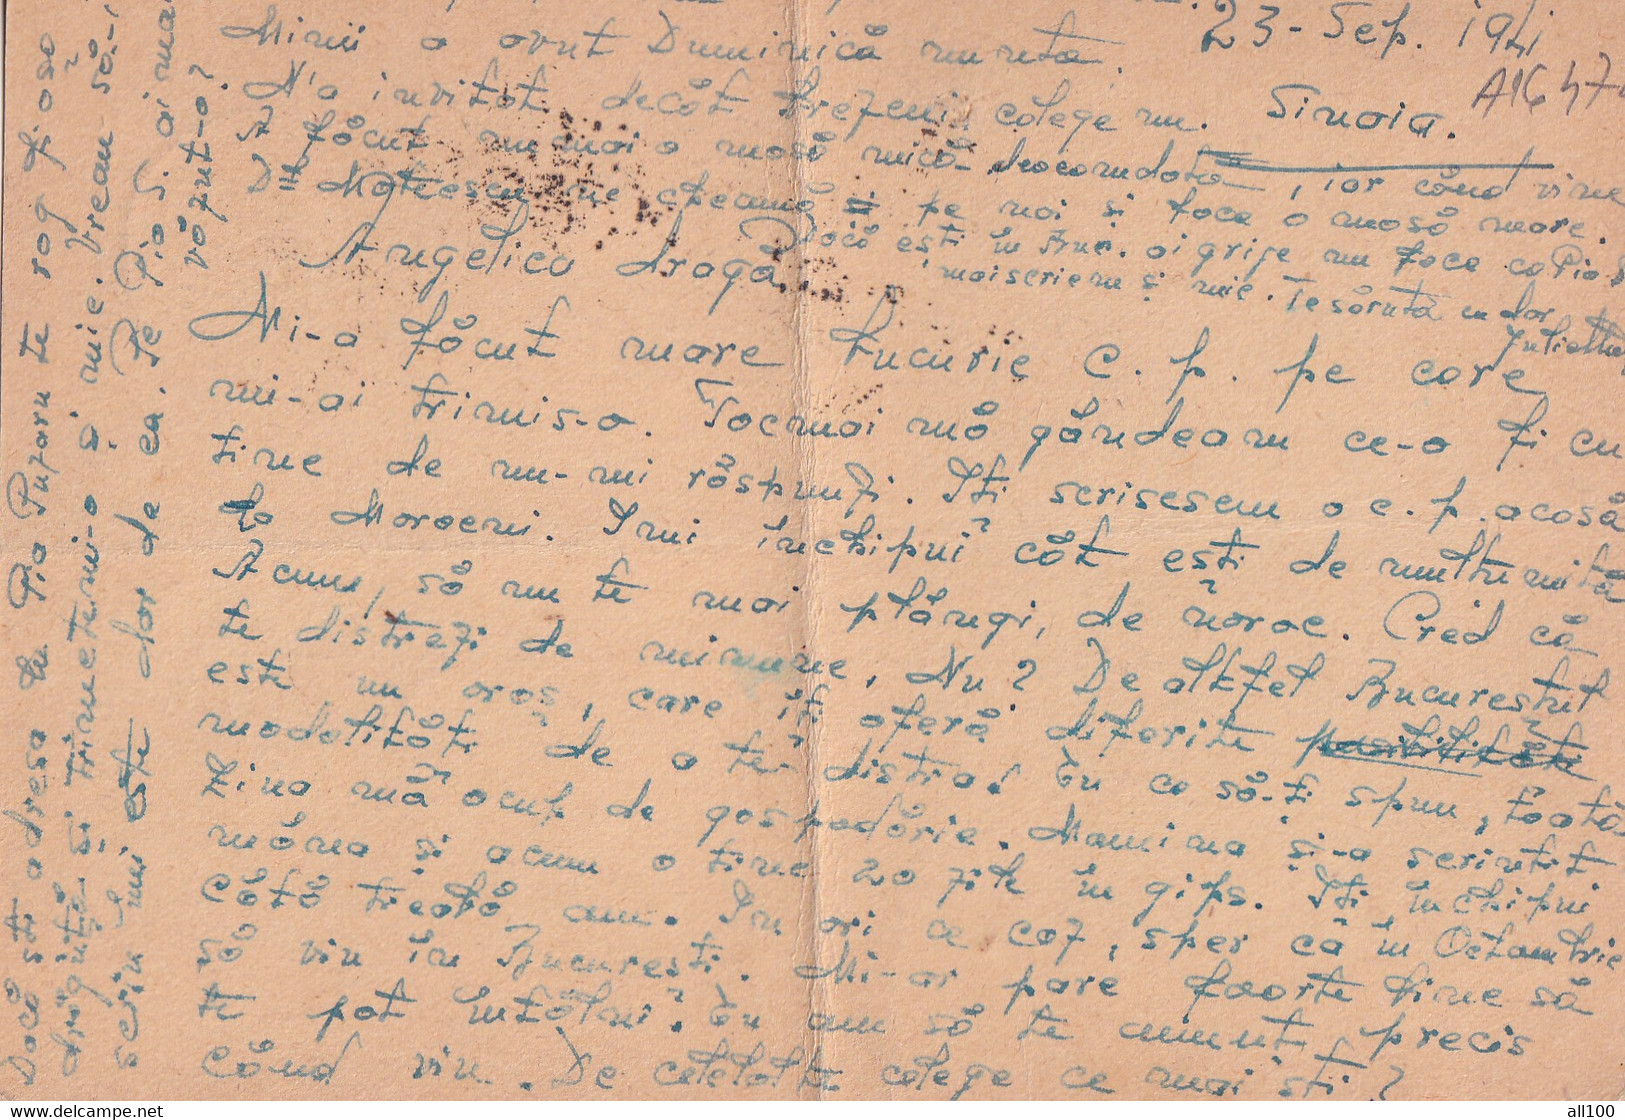 23-Sep. 1941
Sinaia.
A1647
Mimi a avut Duminică nunta.
N'a invitat decât colege
A făcut nu mai o masă mică deocamdata, iar când vine
D-ll Mateescu ne cheamă și pe noi și face o masă mare.
Dacă ești în Buc. ai grije nu face ca Pia
mai scriem și mie. Te sărută cu dor
Angelica dragă
Mi-a făcut mare bucurie C. p. pe care
mi-ai trimis-o. Tocmai mă gândeam ce-o fi cu
tine de nu-mi răspunzi. Iți scrisesem o c. p. acasă
la Moroeni. Imi închipui cât ești de mulțumită
Acum, să nu te mai plângi, de noroc. Cred că
te distrezi de minune, Nu? De altfel Bucureștiul
este un oraș, care îți oferă diferite
modalităti de a te distra. Eu ce să-ți spun, toată
ziua mă ocup de gospodărie. Mamina și-a scrintit
mâna și acum o tine 20 zile în gips. Iți închipui
câtă treabă am. In ori ce caz, sper că în Octombrie
să vin în București. Mi-ar pare foarte bine să
te pot întâlni. Eu am să te anunt precis
când vin. De celelalte colege ce mai știi?
Dacă sti adresa lu Pia te rog fi aso
drăguță și trimetemi-o și mie. Vreau să-i
scriu îmi este dor de ea. Pe Pia S. ai mai
văzut-o?
all100